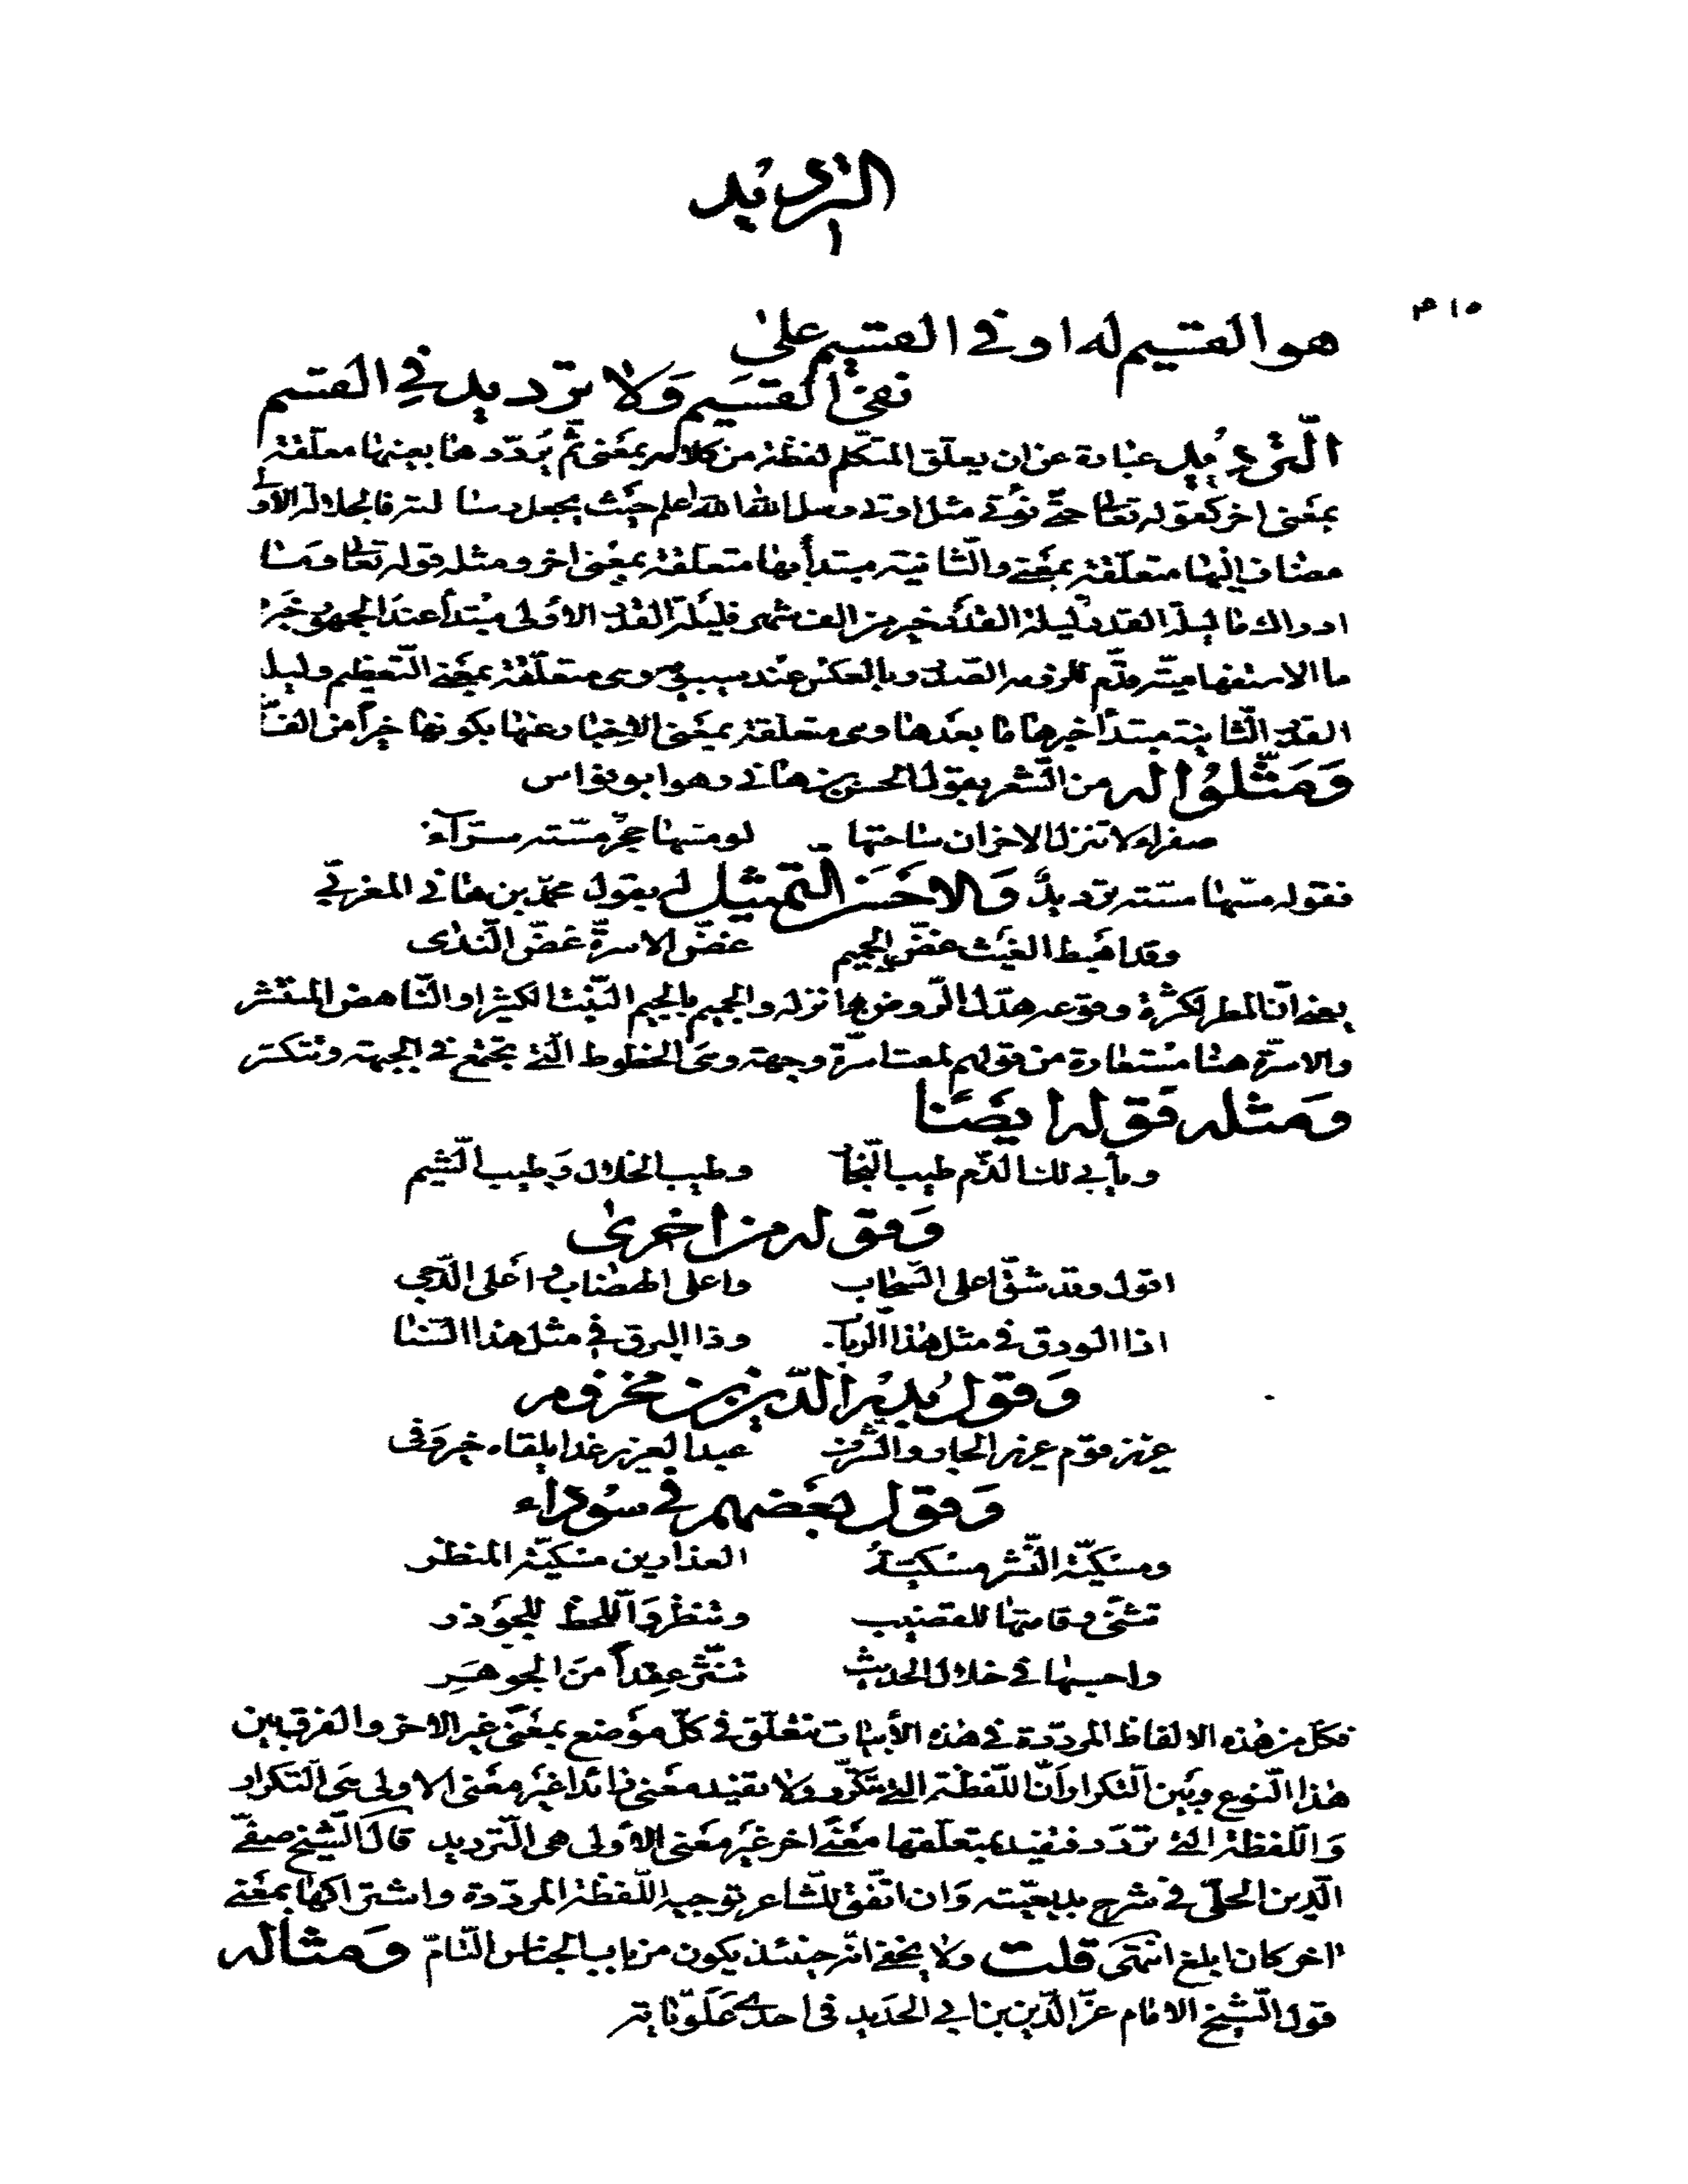 الترديد
١
٣١٥
هو القسيم له او في القسيم على
نفى القسيم ولا ترديد في القسم
الترديد عبارة عن ان يعلق المتكلم لفظة من كلامه بمعنى ثم يرددها بعينها معلقة
بمعنى اخر كقوله تعالى حتى نؤتى مثل اوتى رسل الله الله اعلم حيث يجعل رسالته فالجلالة الأولى
مضاف اليها متعلقة بمعنى والثانية مبتدأ بها متعلقة بمعنى اخر ومثله قوله تعالى وما
ادراك ما ليلة القدر ليلة القدر خير من الف شهر فليلة القدر الاولى مبتدأ عند الجمهور خبره
ما الاستفهامية مقدم للزومه الصدر وبالعكس عند سيبويه وهى متعلقة بمعنى التعظيم وليلة
القدر الثانية مبتدأ خبرها ما بعدها وهى متعلقة بمعنى الاخبار عنها بكونها خيراً من الف
ومثلوا له من الشعر بقول الحسن بن هانى وهو ابو نواس
صفراء لا تنزل الاحزان ساحتها لو مسها حجر مسته سرآء
فقوله مسها مسته ترديد والاحسن التمثيل له بقول محمد بن هانى المغربى
وقد اهبط الغيث غض الجميم غض الاسرة غض الندى
يعنى ان المطر لكثرة وقوعه هذا الروض ما نزله والجميم بالجيم النبت الكثير او الناهض المنتشر
والاسرة هنا مستعارة من قولهم لمعت اسرة وجهه وهى الخطوط التى تجتمع في الجبهة وتتكسر
ومثله قوله ايضا
ويأبى لك الذم طيب النجار وطيب الخلال وطيب الشيم
وقوله من اخرى
اقول وقد شق اعلى السحاب واعلى الهضاب واعلى الدجى
اذا الودق في مثل هذا الرباب وذا البرق في مثل هذا السنا
وقول بدر الدين بن مخزوم
عزيز قوم عزيز الجار والشرف عبد العزيز غدا يلقاه خير وفى
وقول بعضهم في سوداء
ومسكية النشر مسكية العذارين مسكية المنظر
تثنى وقامتها للقضيب وتنظر واللحظ للجوذر
واحسبها في خلال الحديث تنثر عقداً من الجوهر
فكل من هذه الالفاظ المرددة في هذه الأبيات تتعلق في كل موضع بمعنى غير الاخر والفرق بين
هذا النوع وبين التكرار أن اللفظة التى تتكرر ولا تفيد معنى زائدا غير معنى الاولى هى التكرار
واللفظة التى تردد فتفيد بمتعلقها معنى اخر غير معنى الأولى هى الترديد قال الشيخ صفى
الدين الحلى في شرح بديعيته وان اتفق للشاعر توجيه اللفظة المرددة واشتراكها بمعنى
اخر كان ابلغ انتهى قلت ولا يخفى انه حينئذ يكون من باب الجناس التام ومثاله
قول الشيخ الامام عز الدين بن ابى الحديد في احدى علوياته